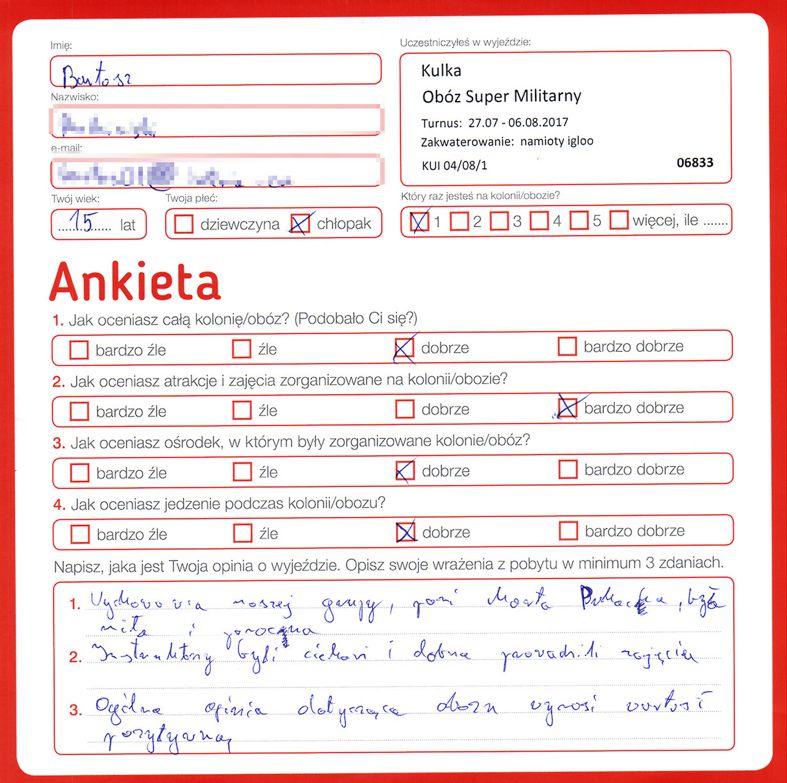 Imię:
Bartosz
Nazwisko:
e-mail:
Twój wiek:
15 lat
Twoja płeć:
dziewczyna chłopak
Uczestniczyłeś w wyjeździe:
Kulka
Obóz Super Militarny
Turnus: 27.07 - 06.08.2017
Zakwaterowanie: namioty igloo
KUI 04/08/1 06833
Który raz jesteś na kolonii/obozie?
1 2 3 4 5 więcej, ile .......
Ankieta
1. Jak oceniasz całą kolonię/obóz? (Podobało Ci się?)
bardzo źle źle dobrze bardzo dobrze
2. Jak oceniasz atrakcje i zajęcia zorganizowane na kolonii/obozie?
bardzo źle źle dobrze bardzo dobrze
3. Jak oceniasz ośrodek, w którym były zorganizowane kolonie/obóz?
bardzo źle źle dobrze bardzo dobrze
4. Jak oceniasz jedzenie podczas kolonii/obozu?
bardzo źle źle dobrze bardzo dobrze
Napisz, jaka jest Twoja opinia o wyjeździe. Opisz swoje wrażenia z pobytu w minimum 3 zdaniach.
1. naszej grupy, pani Marta była
miła i
2. byli ciekawi i dobrze prowadzili zajęcia
3. Ogólna opinia dotycząca obozu wynosi wartość
pozytywną